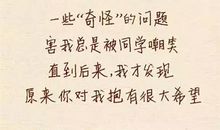 一些“奇怪”的问题
害我总是被同学嘲笑
直到后来，我才发现
原来你对我抱有很大希望